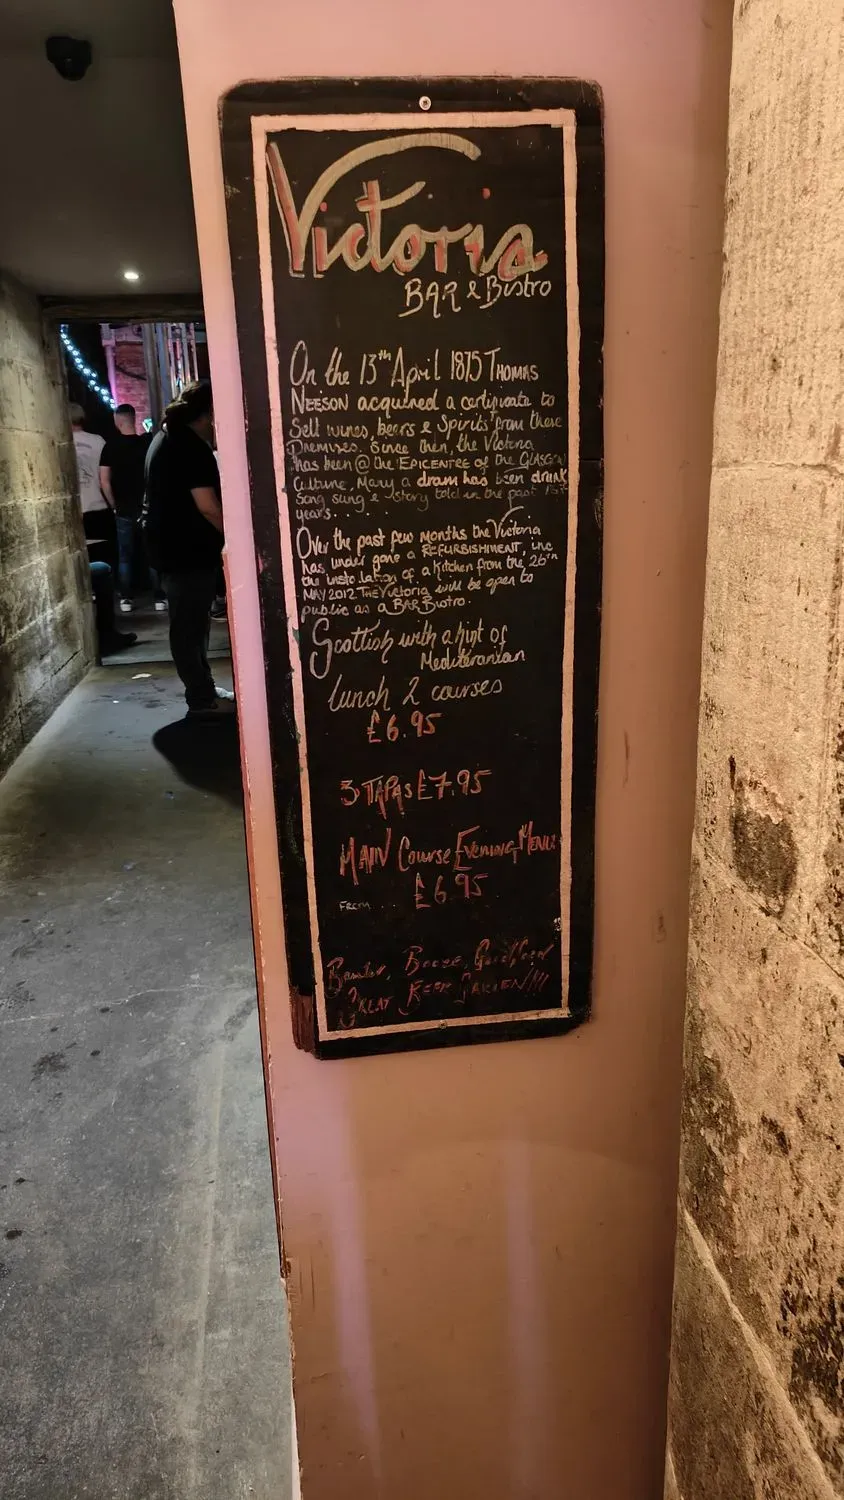 Victoria
BAR & Bistro
On the 13th April 1875 THOMAS
NEESON acquired a certificate to
Sell wines, beers & Spirits from these
Premises. Since then, the Victoria
has been @ the EPICENTRE of the GLASGOW
Culture, Many a dram has been drunk
Song sung & story told in the past
years.....
Over the past few months the Victoria
has under gone a REFURBISHMENT, inc
the instalation of a kitchen from the 26th
MAY 2012 THE Victoria will be open to
public as a BAR Bistro.
Scottish with a hint of
Mediteranian
lunch 2 courses
£6.95
3 TAPAS £7.95
MAIN Course Evening MENU
FROM... £6.95
Banter, Booze, Good food
GREAT BEER GARDEN!!!